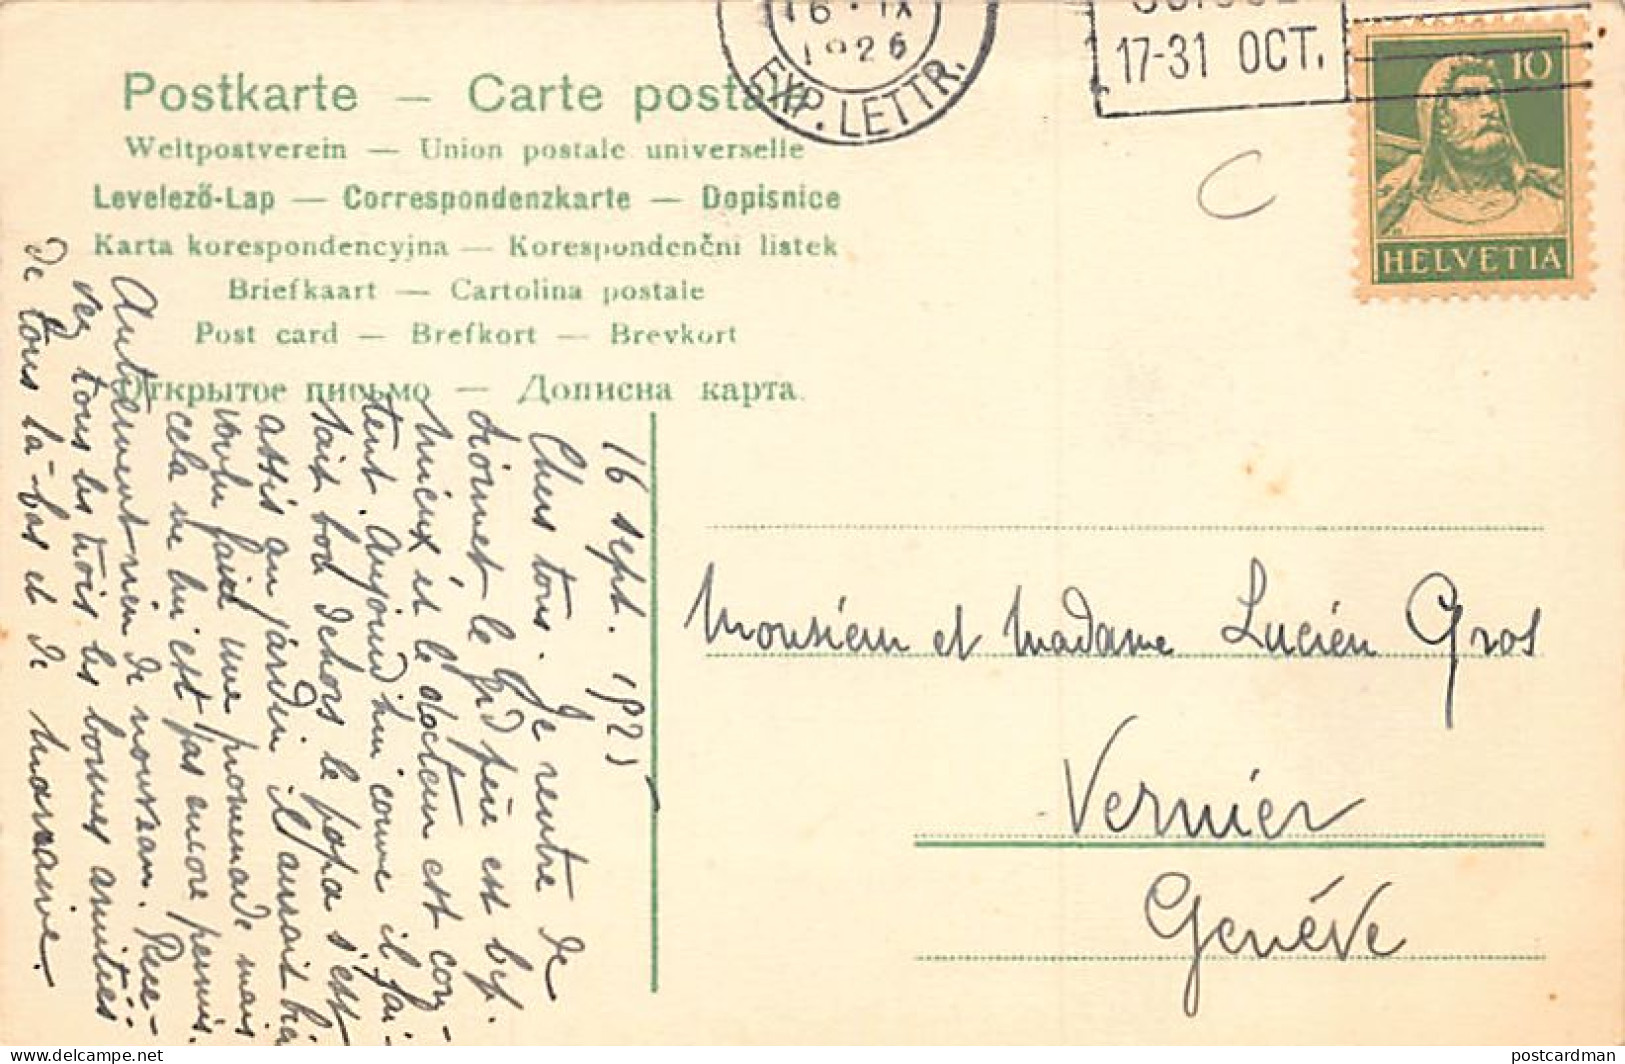 16 · IX
1926
EXP. LETTR.
17-31 OCT.
10
HELVETIA
Postkarte — Carte postale
Weltpostverein — Union postale universelle
Levelező-Lap — Correspondenzkarte — Dopisnice
Karta korespondencyjna — Korespondenčni listek
Briefkaart — Cartolina postale
Post card — Brefkort — Brevkort
Открытое письмо — Дописна карта.
16 sept. 192
Chers tous. Je rentre de
le Grd père est bcp.
mieux et le docteur est con-
tent. Aujourd'hui comme il fai-
sait bon dehors le papa s'est
assis au jardin il aurait bien
voulu faire une promenade mais
cela ne lui est pas encore permis.
Autrement rien de nouveau. Rece-
vez tous les trois les bonnes amitiés
de tous là-bas et de marraine.
Monsieur et Madame Lucien Gros
Vernier
Genève
postcardman